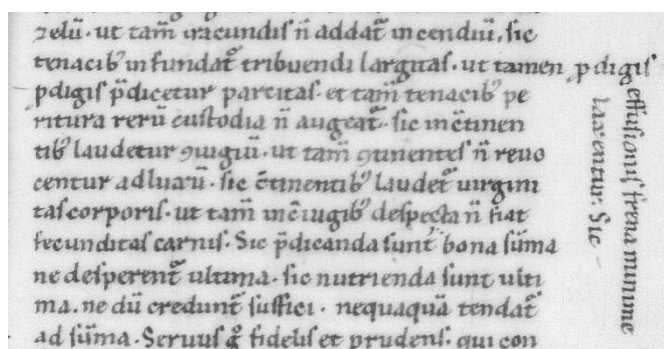 zelū· ut tam̄ iracundis n̄ addat᷑ incendiū, sic
tenacib; infundat᷑ tribuendi largitas· ut tamen ꝓdigis
effusionis frena minime
laxentur. Sic
ꝓdigis p̄dicetur parcitas· et tam̄ tenacib; pe
ritura rerū custodia n̄ augeat᷑· sic inc̄tinen
tib; laudetur ꝯiugiū· ut tam̄ ꝯtinentes n̄ reuo
centur ad luxū· sic c̄tinentib; laudet᷑ uirgini
tas corporis· ut tam̄ in c̄iugib; despecta n̄ fiat
fecunditas carnis· Sic p̄dicanda sunt bona sūma
ne desperent᷑ ultima· sic nutrienda sunt ulti
ma· ne dū credunt᷑ suffici· nequaquā tendat᷑
ad sūma· Seruus g̊ fidelis et prudens· qui con